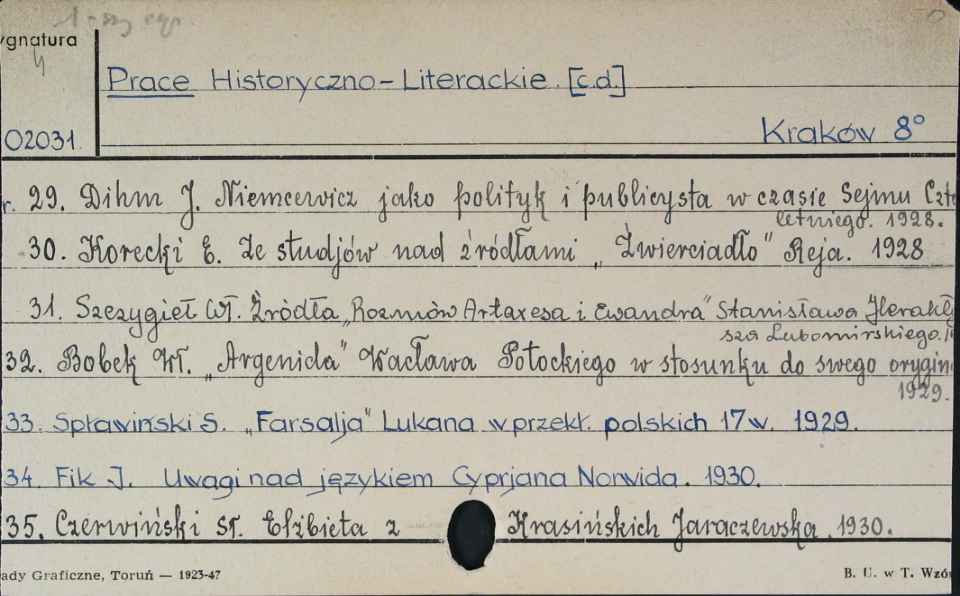 1-szy egz.
ygnatura
Prace Historyczno-Literackie. [c.d.]
02031.
Kraków 8°
r. 29. Dihm J. Niemcewicz jako polityk i publicysta w czasie Sejmu Czte
letniego. 1928.
30. Korecki E. Ze studjów nad źródłami „Źwierciadło" Reja. 1928
31. Szczygieł Wł. Źródła „Rozmów Artaxesa i Ewandra" Stanisława Herakl
sza Lubomirskiego.
32. Bobek Wł. „Argenida" Wacława Potockiego w stosunku do swego orygin
1929.
33. Spławiński S. „Farsalja" Lukana w przekł. polskich 17 w. 1929.
34. Fik J. Uwagi nad językiem Cyprjana Norwida. 1930.
35. Czerwiński St. Elżbieta z Krasińskich Jaraczewska. 1930.
ady Graficzne, Toruń — 1923-47
B. U. w T. Wzó